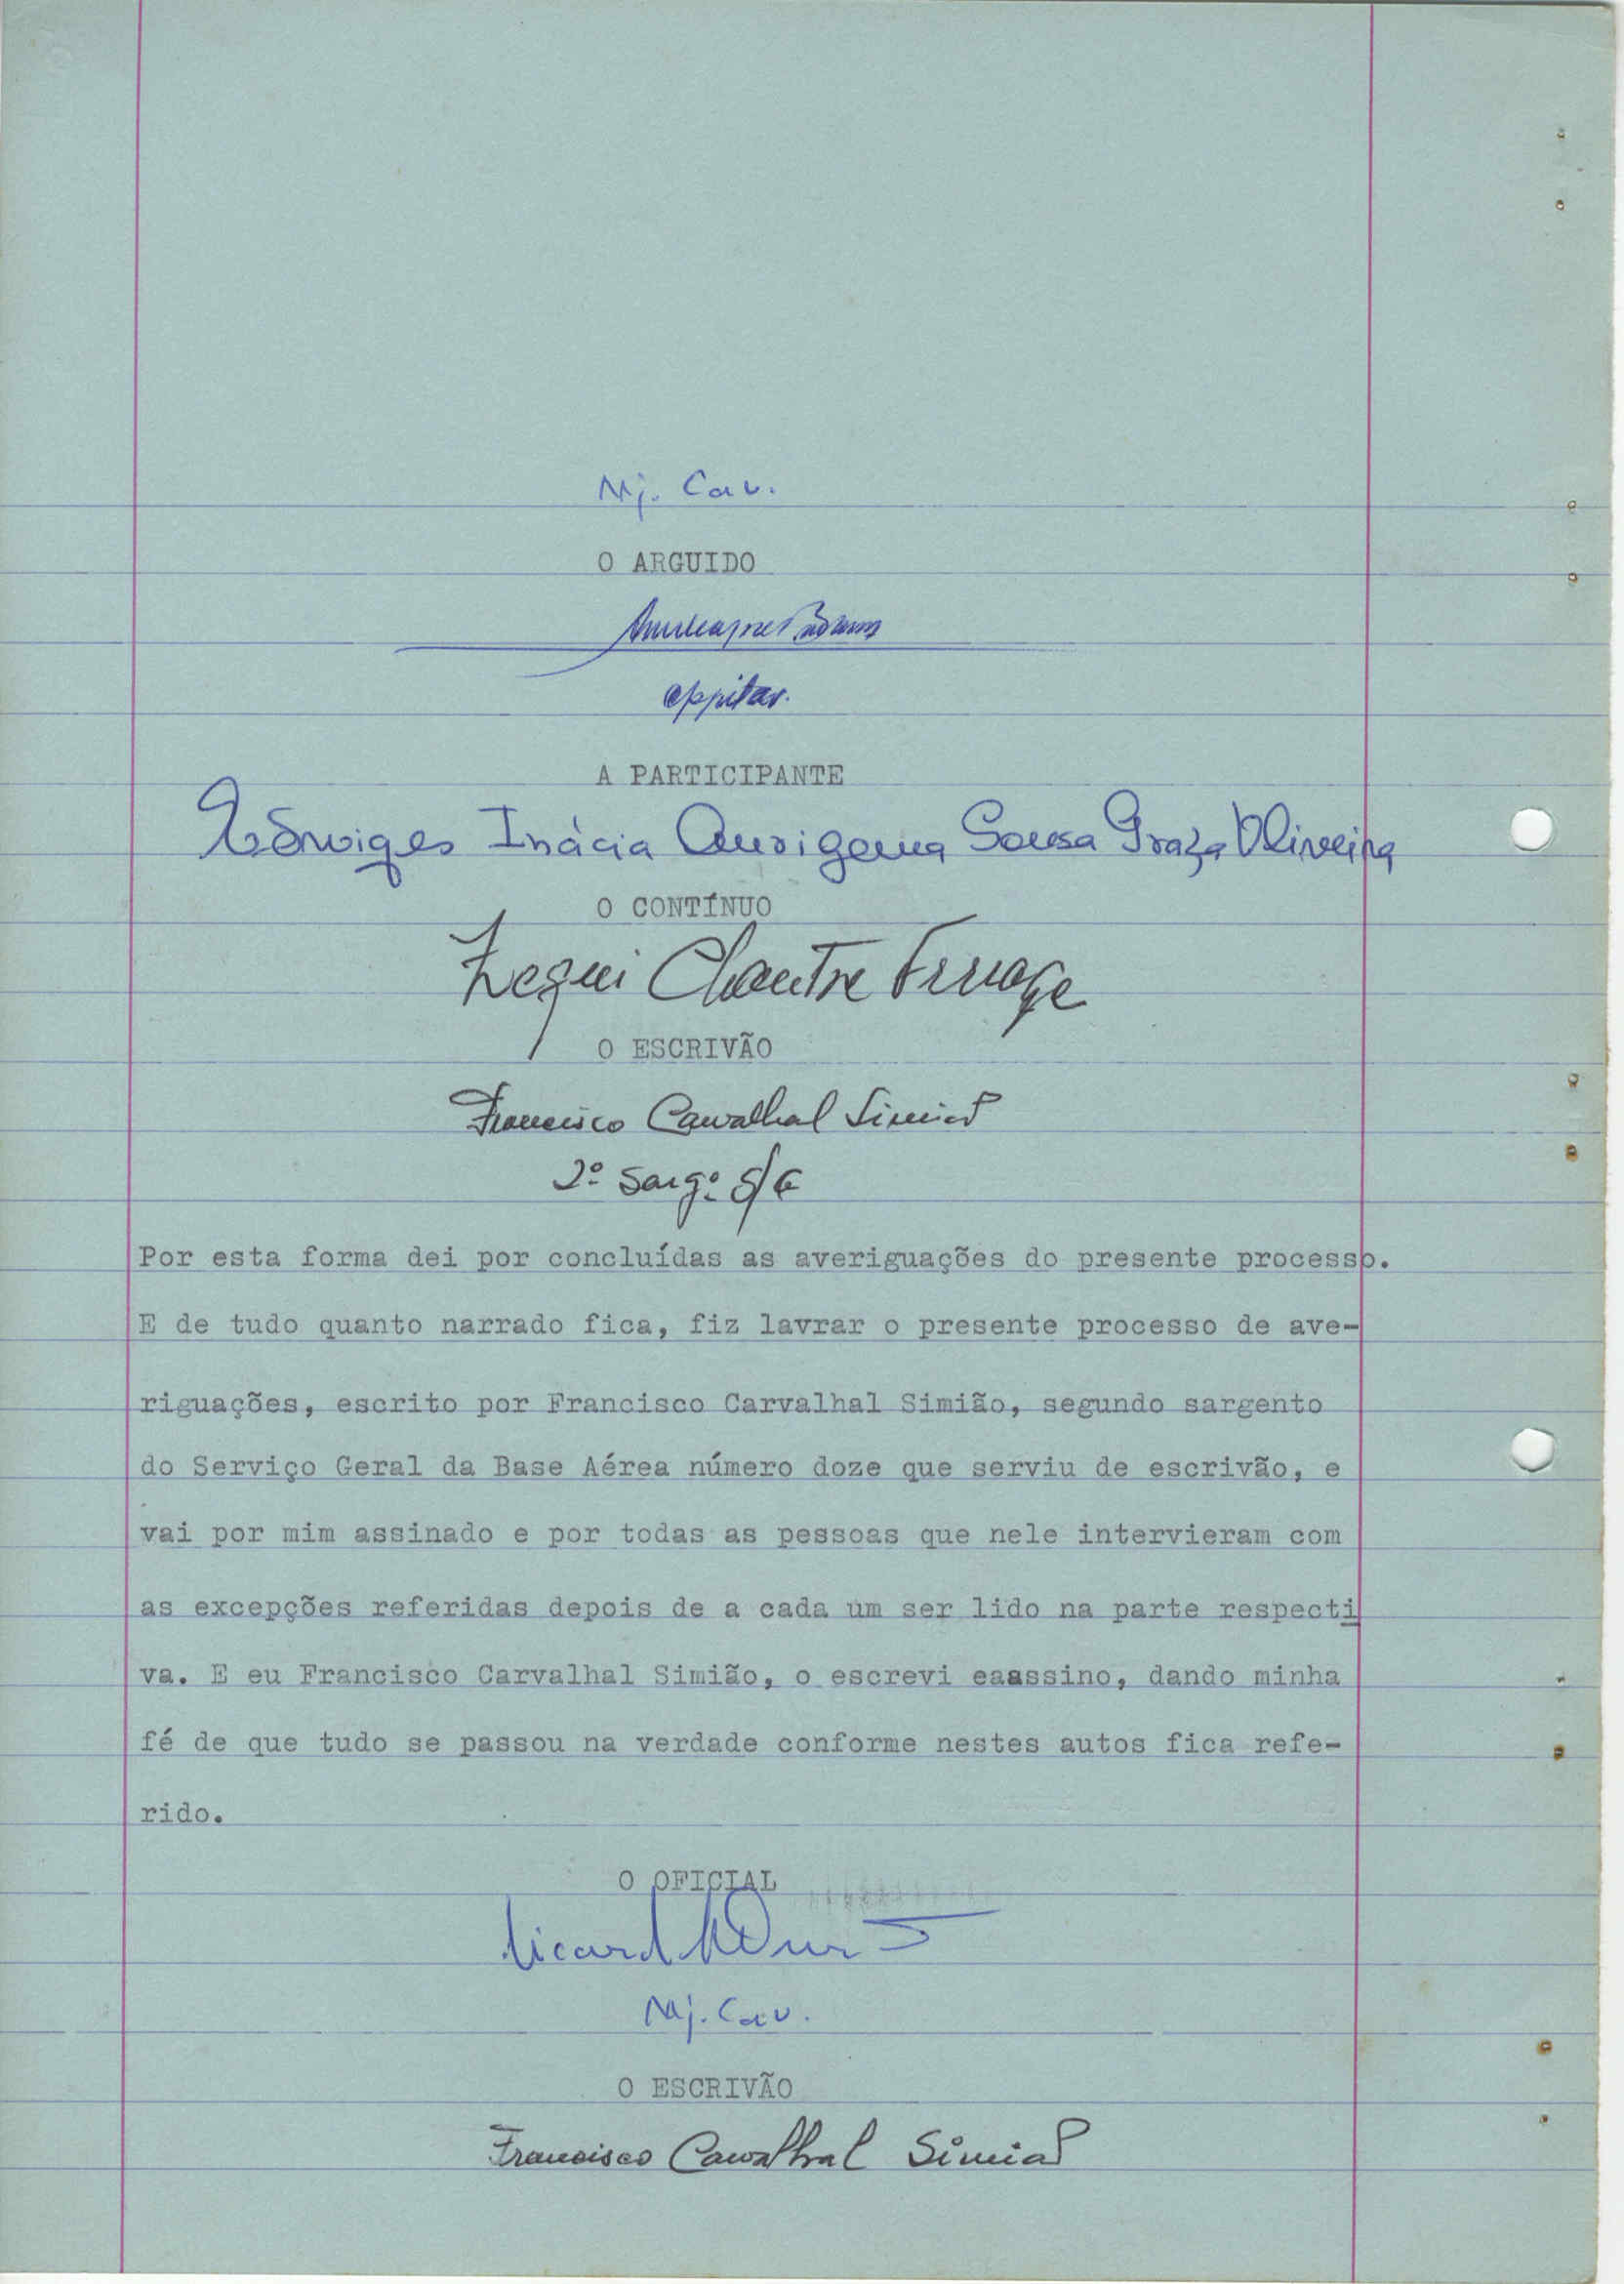 Mj. Cav.
O ARGUIDO
A PARTICIPANTE
Edwiges Inácia Sousa Graça Oliveira
O CONTÍNUO
Zequi Chantre
O ESCRIVÃO
Francisco Carvalhal Simião
2º Sargº S/G
Por esta forma dei por concluídas as averiguações do presente processo.
E de tudo quanto narrado fica, fiz lavrar o presente processo de ave-
riguações, escrito por Francisco Carvalhal Simião, segundo sargento
do Serviço Geral da Base Aérea número doze que serviu de escrivão, e
vai por mim assinado e por todas as pessoas que nele intervieram com
as excepções referidas depois de a cada um ser lido na parte respecti
va. E eu Francisco Carvalhal Simião, o escrevi eaassino, dando minha
fé de que tudo se passou na verdade conforme nestes autos fica refe-
rido.
O OFICIAL
Mj. Cav.
O ESCRIVÃO
Francisco Carvalhal Simião